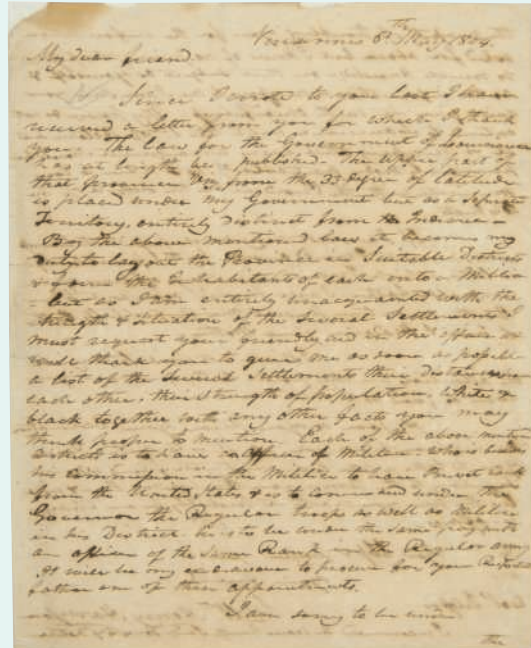 Vincennes 8th May 1804.
My dear friend
Since I wrote to you last I have
received a letter from you for which I thank
you. The Law for the Government of Louisiana
has at length been published. The upper part of
that Province from the 33 degree of latitude
is placed under my Government but as a Seperate
Territory, entirely distinct from the Indiana
By the above mentioned law it becomes my
duty to lay out the Province in Suitable Districts
& form the Inhabitants of each into a Militia
but as I am entirely unacquainted with the
strength & situation of the Several Settlements I
must request your friendly aid in the affair &
will thank you to give me as soon as possible
a list of the Several Settlements their distance from
each other, their strength of population, White &
black together with any other facts you may
think proper to mention. Each of the above mentioned
districts is to have an officer of Militia who is besides
his commission in the Militia to have Brevet rank
from the United States & is to command under the
Governor the Regular troops as well as Militia
in his District he is to be under the same pay with
an officer of the same Rank in the Regular army
It will be my endeavour to procure for your
father one of these appointments.
I am sorry to be
the